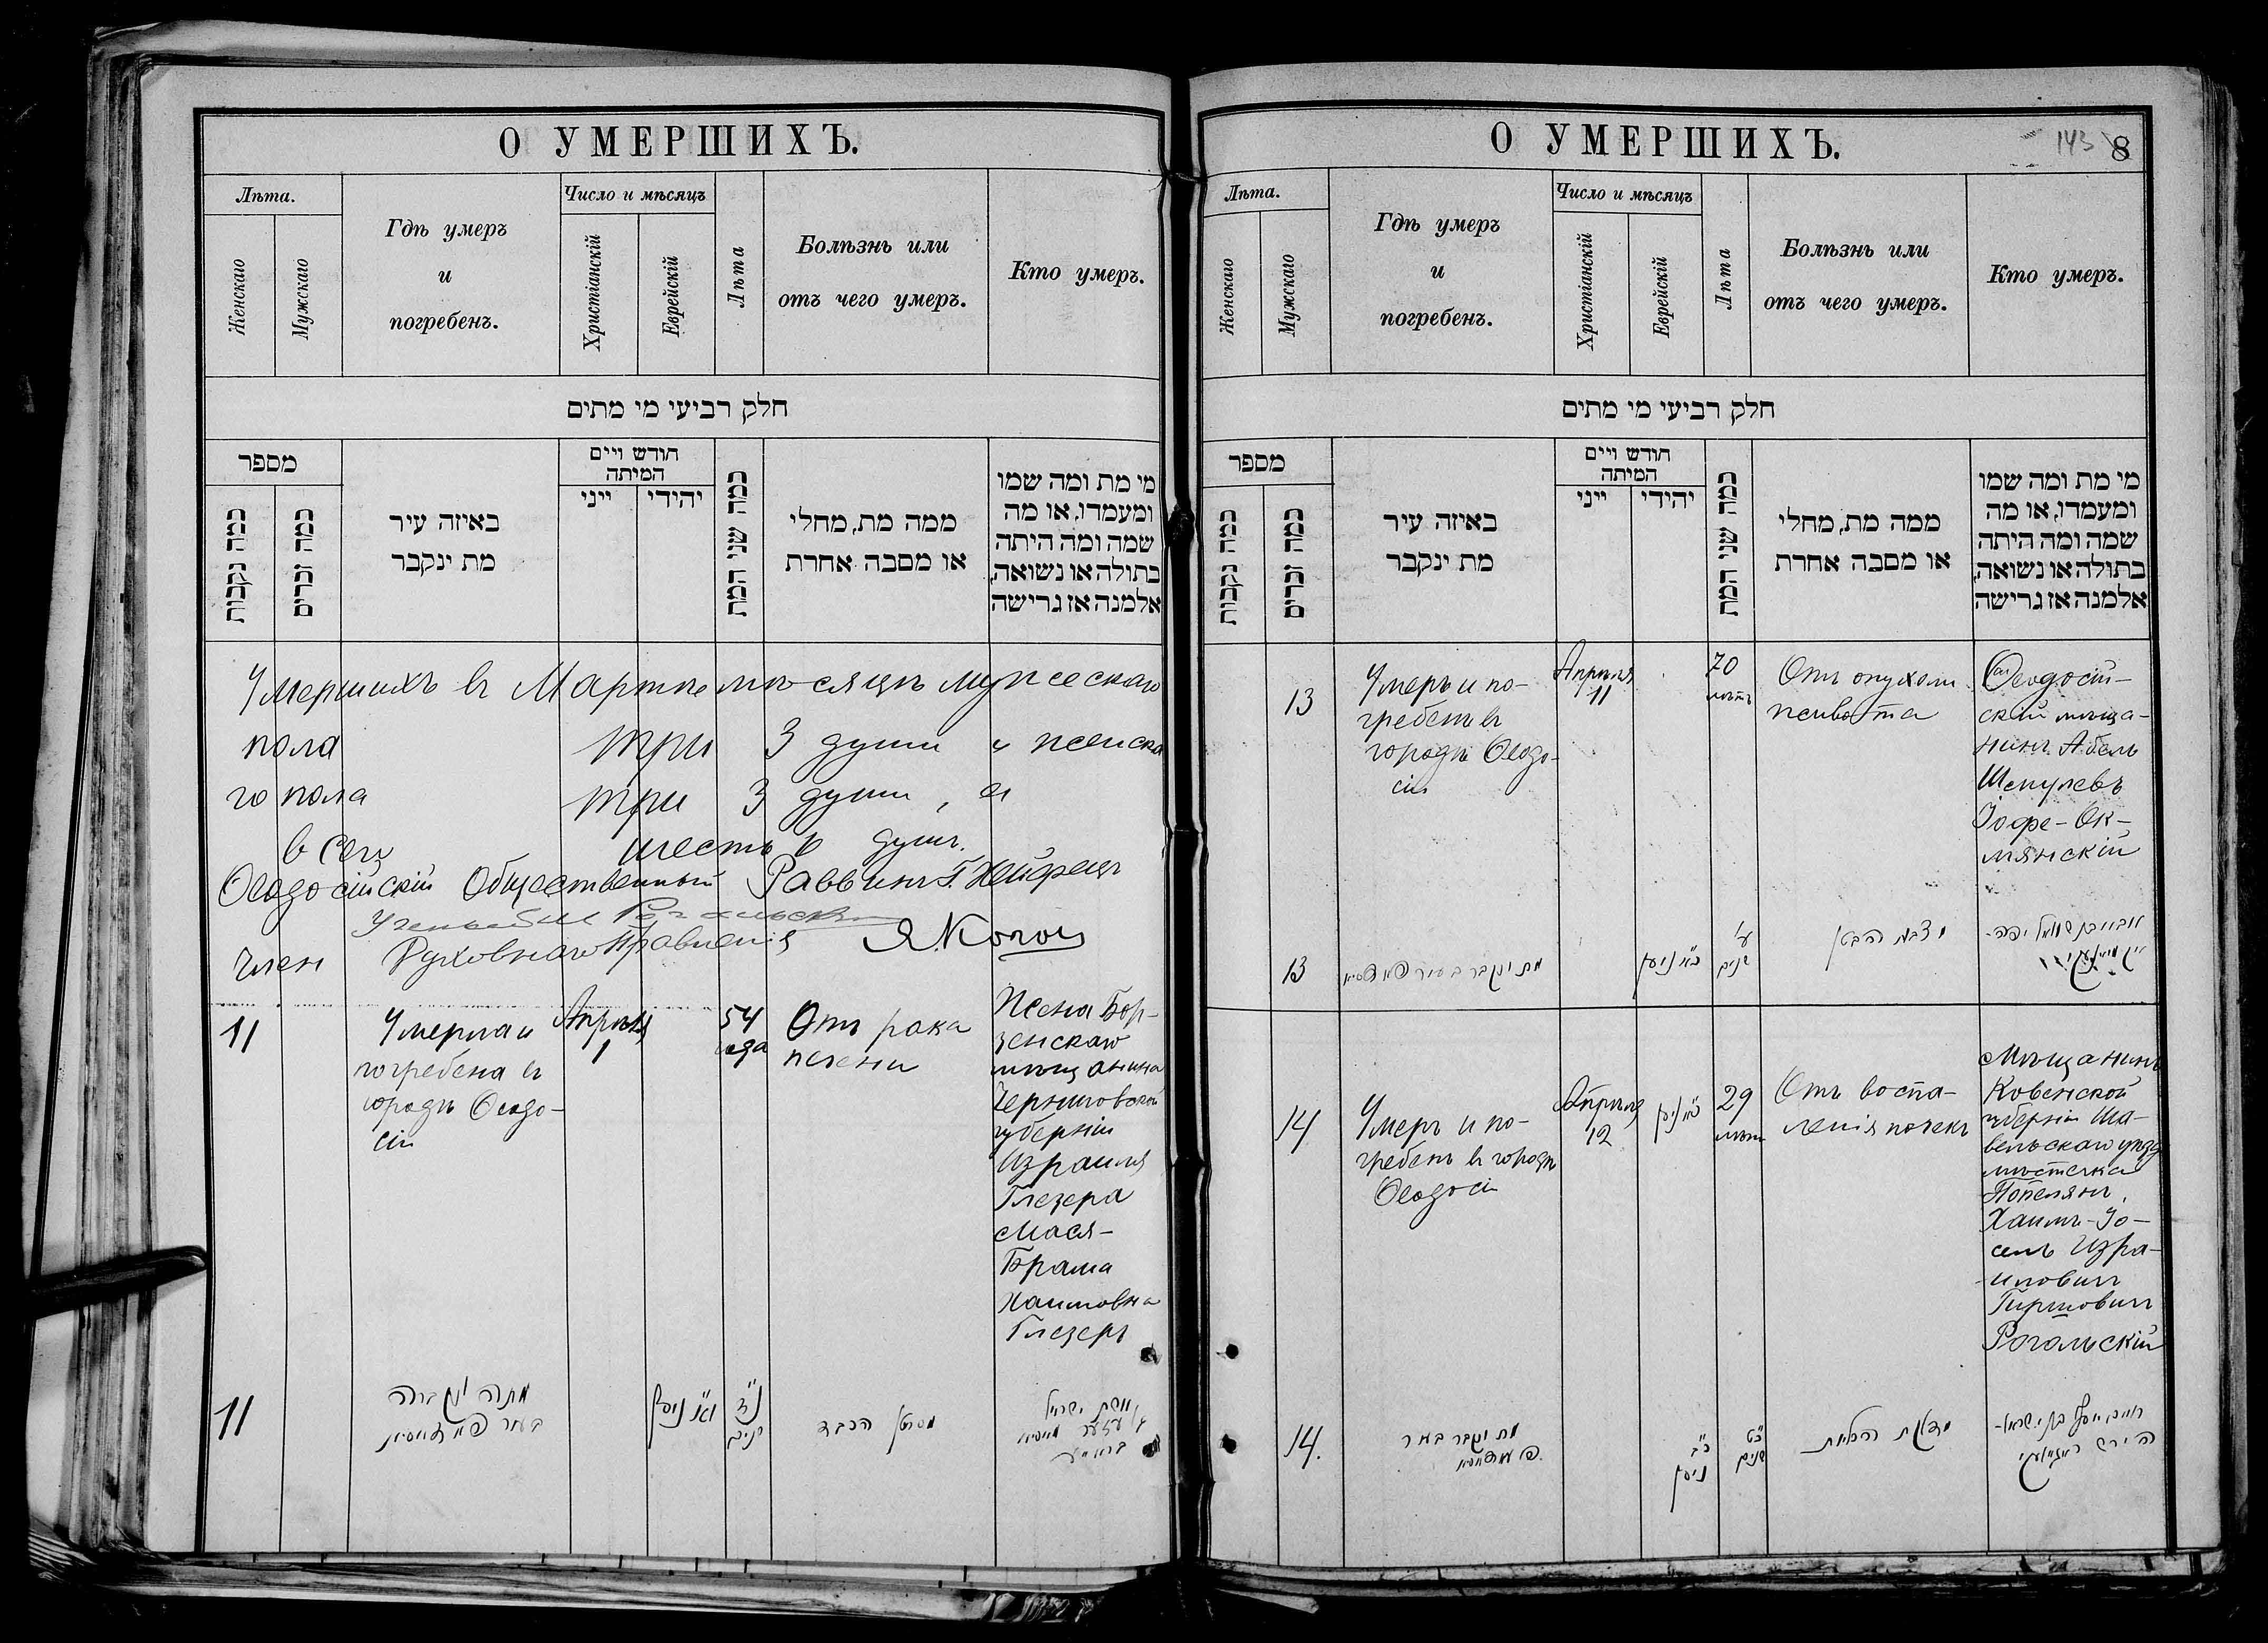 О УМЕРШИХЪ.
Лѣта.
Женскаго
Мужскаго
Гдѣ умеръ
и
погребенъ.
Число и мѣсяцъ
Христіанскій
Еврейскій
Лѣта
Болѣзнь или
отъ чего умеръ.
Кто умеръ.
חלק רביעי מי מתים
מספר
כמה נקבות
כמה זכרים
באיזה עיר
מת ינקבר
חודש ויים
המיתה
ייני
יהידי
כמה שני המת
ממה מת, מחלי
או מסבה אחרת
מי מת ומה שמו
ומעמדו, או מה
שמה ומה היתה
בתולה או נשואה,
אלמנה אז גרישה
Умершихъ въ Мартѣ мѣсяцѣ мужескаго
пола три 3 души и женска
го пола три 3 души, а
всего шесть 6 душъ.
Ѳеодосійскій Общественный Раввинъ
Членъ Духовнаго Правленія Я. Коген
11
Умерла и
погребена въ
городѣ Ѳеодо-
сіи
Апрѣля
1
54
года
Отъ рака
печени
Жена Бор-
зенскаго
мѣщанина
Черниговской
губерніи
Израиля
Глезера
Мася-
Брама
Хаимовна
Глезеръ
11
מתה ונקברה
בעיר
ניסן
נ"ד
שנים
מסרטן הכבד
אשת ישראל
О УМЕРШИХЪ.
143
8
Лѣта.
Женскаго
Мужскаго
Гдѣ умеръ
и
погребенъ.
Число и мѣсяцъ
Христіанскій
Еврейскій
Лѣта
Болѣзнь или
отъ чего умеръ.
Кто умеръ.
חלק רביעי מי מתים
מספר
כמה נקבות
כמה זכרים
באיזה עיר
מת ינקבר
חודש ויים
המיתה
ייני
יהידי
כמה שני המת
ממה מת, מחלי
או מסבה אחרת
מי מת ומה שמו
ומעמדו, או מה
שמה ומה היתה
בתולה או נשואה,
אלמנה אז גרישה
13
Умеръ и по-
гребенъ въ
городѣ Ѳеодо-
сіи
Апрѣля
11
70
лѣтъ
Отъ опухоли
живота
Ѳеодосій-
скій мѣща-
нинъ Абель
Шмулевъ
Іофе-Ок-
мянскій
13
מת ונקבר בעיר
כ"א ניסן
ע'
שנים
הבטן
14
Умеръ и по-
гребенъ въ городѣ
Ѳеодосіи
Апрѣля
12
29
лѣтъ
Отъ воспа-
ленія почекъ
Мѣщанинъ
Ковенской
губерніи Ша-
вельскаго уѣзда
мѣстечка
Попелянъ,
Хаимъ-Іо-
сель Изра-
иловичъ
Гиршовичъ
Рогольскій
14.
מת ונקבר בעיר
כ"ב
ניסן
כ"ט
שנים
מדלקת הכליות
חיים יוסף בן ישראל